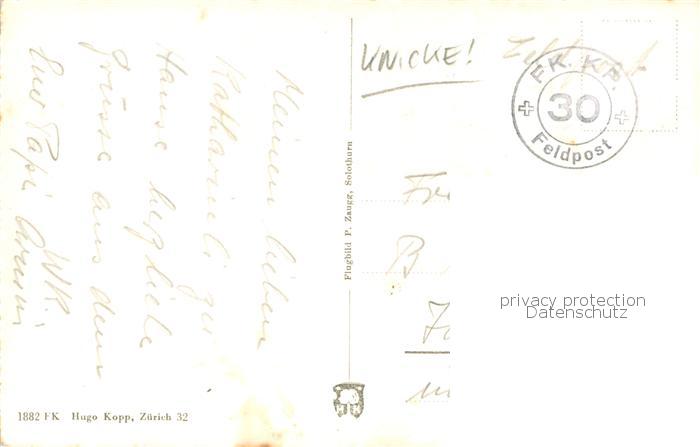 Meinen lieben
Katharinli zu
Hause herzliche
Grüsse aus dem
WK.
Euer Papi
KNICKE!
Feldpost
FK. KP.
30
Feldpost
Flugbild P. Zaugg, Solothurn
B
privacy protection
Datenschutz
1882 FK Hugo Kopp, Zürich 32